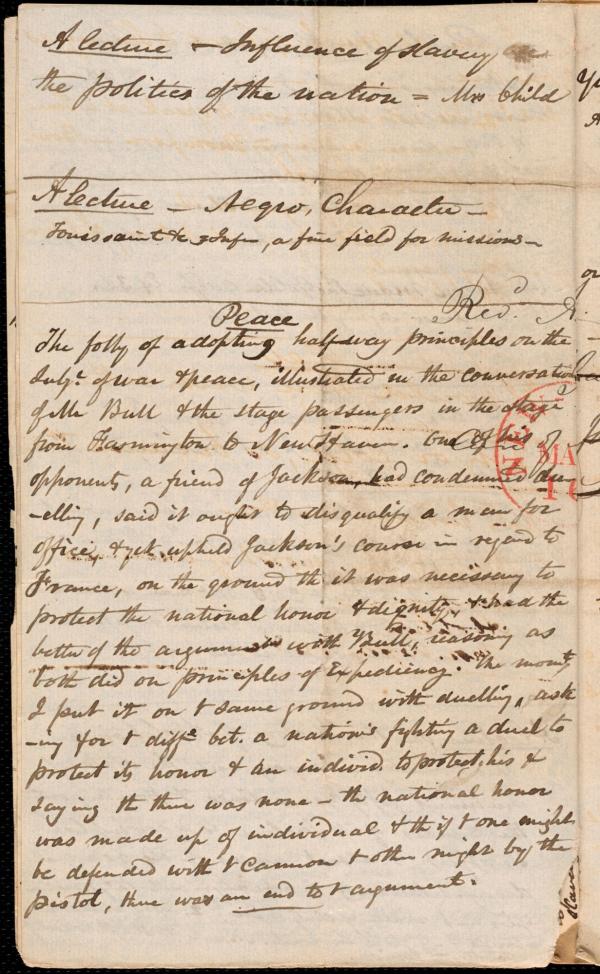 A lecture - Influence of slavery on
the politics of the nation = Mrs Child
A lecture - Negro, Character -
Toussaint &c, a fine field for missions -
Recd. A.
Peace
The folly of adopting half-way principles on the
subjt. of war & peace, illustrated in the conversation
of Mr Bull & the stage passengers in the stage
from Farmington to New Haven. One of his
opponents, a friend of Jackson, had condemned du-
-elling, said it ought to disqualify a man for
office, & yet upheld Jackson's course in regard to
France, on the ground th it was necessary to
protect the national honor & dignity, & had the
better of the argument with Bull, reasoning as
both did on principles of Expediency. The moment
I put it on t same ground with duelling, ask
-ing for t diffe bet. a nation's fighting a duel to
protect its honor & an individ. to protect his &
saying th there was none - th national honor
was made up of individual & th if t one might
be defended with t cannon t other might by the
pistol, there was an end to t argument.